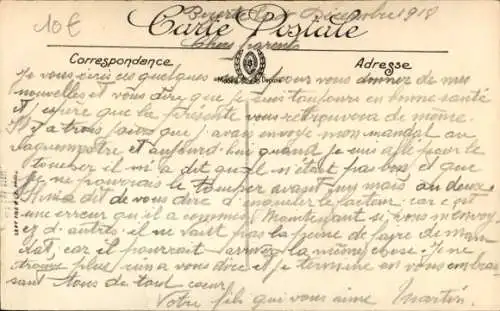 10€
Bizerte le Décembre 1918
Carte Postale
Chers parents
Correspondance
Adresse
Je vous écris ces quelques pour vous donner de mes
nouvelles et vous dire que je suis toujours en bonne santé
et espère que la présente vous retrouvera de même.
Il y a trois jours que j'avais envoyé mon mandat au
vaguemestre et aujourd'hui quand je suis allé pour le
toucher il m'a dit qu'il n'était pas bon et que
je ne pourrais le toucher avant un mois au deux
Il m'a dit de vous dire d'enqueter le facteur car c'est
une erreur qu'il a commis Maintenant si vous m'envoy
ez d'autres il ne vaut pas la peine de faire de man
dat car il pourrait arriver la même chose. Je ne
trouve plus rien a vous dire et je termine en vous embras
sant tous de tout coeur
Votre fils qui vous aime Martin